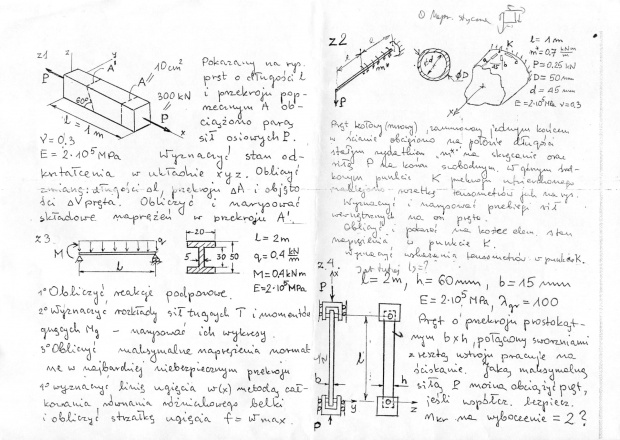 z1
z
y
A'
A
10 cm²
P
300 kN
60°
P
x
L = 1m
ν = 0,3
E = 2·10⁵ MPa
Pokazany na rys.
pręt o długości l
i przekroju pop-
rzecznym A ob-
ciążono parą
sił osiowych P.
Wyznaczyć stan od-
kształcenia w układzie xyz. Obliczyć
zmianę: długości Δl, przekroju ΔA i objęto
ści ΔV pręta. Obliczyć i narysować
składowe naprężeń w przekroju A'.
z3.
M
q
L
20
5
30
50
L = 2m
q = 0,4 kN/m
M = 0,4 kNm
E = 2·10⁵ MPa
1° Obliczyć reakcje podporowe.
2° Wyznaczyć rozkłady sił tnących T i momentów
gnących Mg – narysować ich wykresy.
3° Obliczyć maksymalne naprężenia normal
ne w najbardziej niebezpiecznym przekroju
4° wyznaczyć linię ugięcia w(x) metodą cał-
kowania równania różniczkowego belki
i obliczyć strzałkę ugięcia f = w max.
z2
P
d
ΦD
K
45°
x
l = 1m
m = 0,7 kNm/m
P = 0,25 kN
D = 50 mm
d = 45 mm
E = 2·10⁵ MPa ν = 0,3
Pręt kołowy (rurowy), zamurowany jednym końcem
w ścianie obciążono na połowie długości
stałym wydatkiem m na skręcanie oraz
siłą P na końcu swobodnym. W górnym
punkcie K przekroju utwierdzonego
naklejono rozetkę tensometrów jak na rys.
Wyznaczyć i narysować przebiegi sił
wewnętrznych na osi pręta.
Obliczyć i pokazać na kostce elem. stan
naprężenia w punkcie K.
Wyznaczyć wskazania tensometrów w punkcie K.
z.4.
P
x
b
l
h
y
z
P
l = 2m, h = 60 mm, b = 15 mm
E = 2·10⁵ MPa, λgr = 100
Pręt o przekroju prostokąt-
nym b×h, połączony sworzniami
z resztą ustroju pracuje na
ściskanie. Jaką maksymalną
siłą P można obciążyć pręt,
jeśli współcz. bezpiecz.
na wyboczenie = 2?